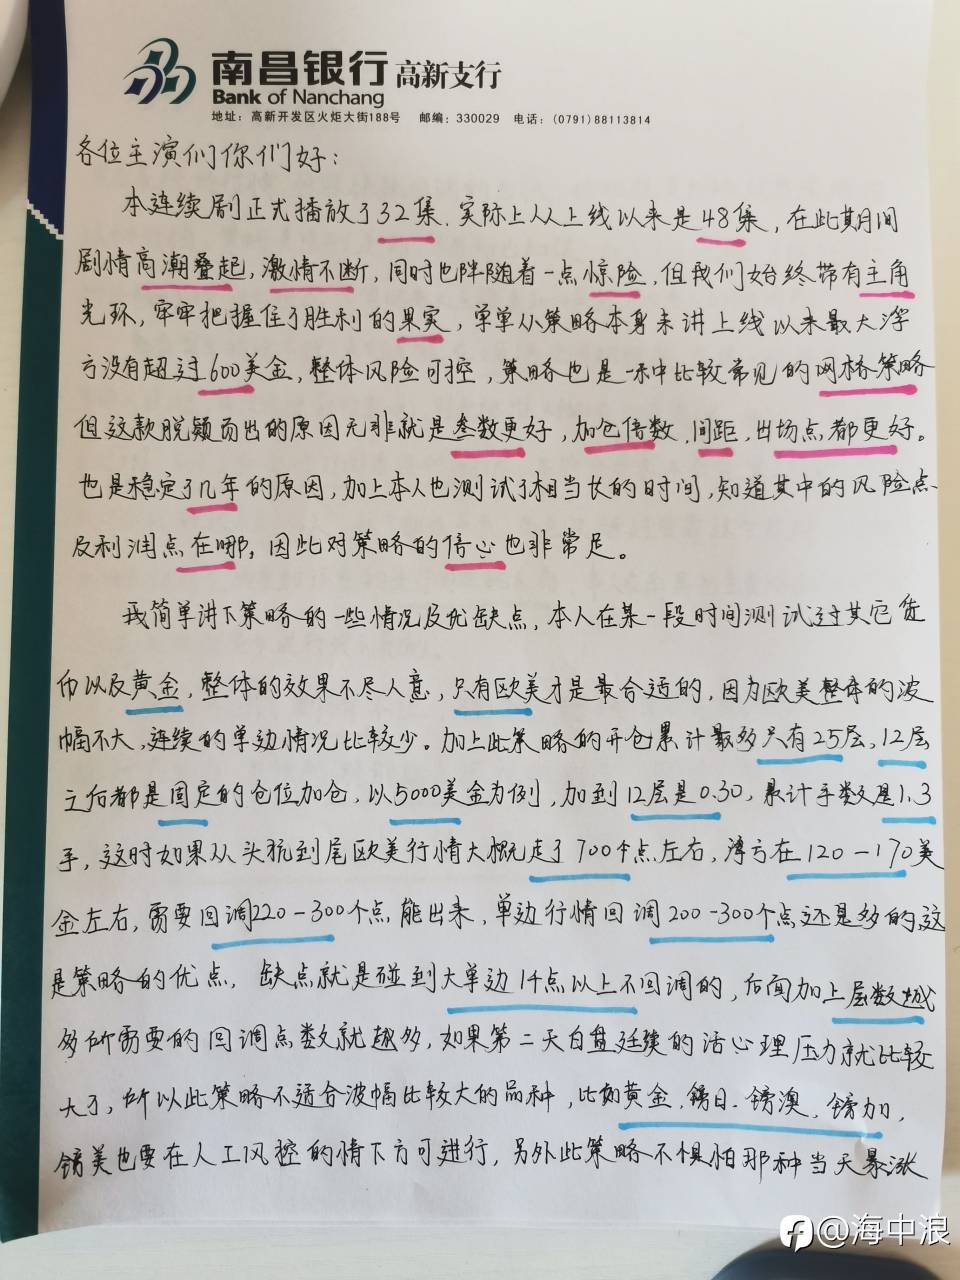 南昌银行 高新支行
Bank of Nanchang
地址：高新开发区火炬大街188号 邮编：330029 电话：(0791)88113814
各位主演们你们好：
本连续剧正式播放了32集．实际上从上线以来是48集，在此期间
剧情高潮叠起，激情不断，同时也陪随着一点惊险，但我们始终带有主角
光环，牢牢把握住了胜利的果实，单单从策略本身来讲上线以来最大浮
亏没有超过600美金，整体风险可控，策略也是一种比较常见的网格策略
但这款脱颖而出的原因无非就是参数更好，加仓倍数，间距，出场点都更好。
也是稳定了几年的原因，加上本人也测试了相当长的时间，知道其中的风险点
及利润点在哪，因此对策略的信心也非常足。
我简单讲下策略的一些情况及优缺点，本人在某一段时间测试过其它货
币以及黄金，整体的效果不尽人意，只有欧美才是最合适的，因为欧美整体的波
幅不大，连续的单边情况比较少。加上此策略的开仓累计最多只有25层，12层
之后都是固定的仓位加仓，以5000美金为例，加到12层是0.30，累计手数是1.3
手，这时如果从头犹到尾欧美行情大概走了700个点左右，浮亏在120－170美
金左右，需要回调220－300个点能出来，单边行情回调200－300个点还是多的这
是策略的优点，缺点就是碰到大单边1千点以上不回调的，后面加上层数越
多所需要的回调点数就越多，如果第二天白盘延续的话心理压力就比较
大了，所以此策略不适合波幅比较大的品种，比如黄金，镑日．镑澳，镑加，
镑美也要在人工风控的情下方可进行，另外此策略不惧怕那种当天暴涨
@海中浪